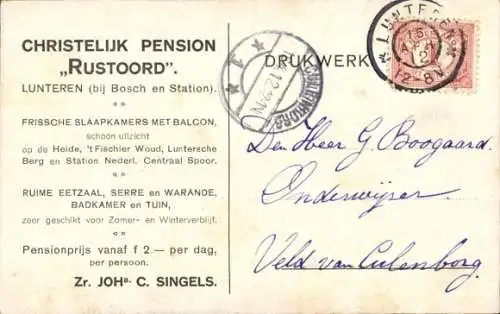 CHRISTELIJK PENSION
„RUSTOORD”.
LUNTEREN (bij Bosch en Station).
FRISSCHE SLAAPKAMERS MET BALCON,
schoon uitzicht
op de Heide, 't Fischler Woud, Luntersche
Berg en Station Nederl. Centraal Spoor.
RUIME EETZAAL, SERRE EN WARANDE,
BADKAMER EN TUIN,
zeer geschikt voor Zomer- en Winterverblijf.
Pensionprijs vanaf f 2.— per dag,
per persoon.
Zr. JOHa. C. SINGELS.
DRUKWERK
LUNTEREN
12-8V
Den Heer G. Boogaard
Onderwijzer
Veld van Culenborg.